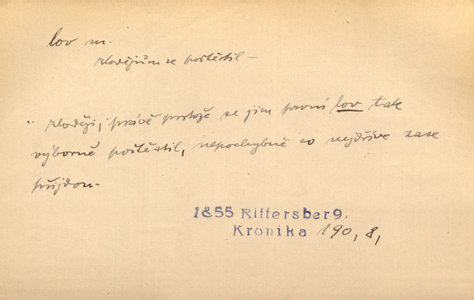 lov m.
zlodějům se poštěstil –
„ zloději, právě protože se jim první lov tak
výborně poštěstil, nepochybně co nejdříve zase
přijdou.
1855 Rittersberg,
Kronika 190, 8,